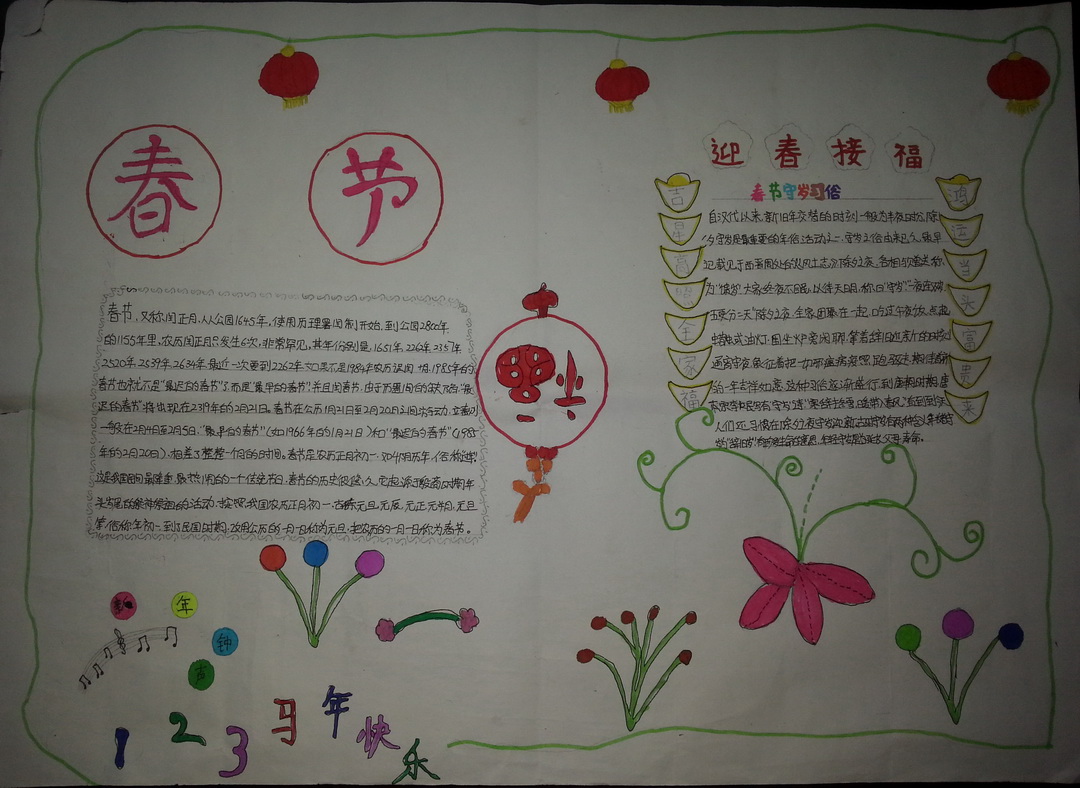 春 节
迎 春 接 福
春节守岁习俗
吉星高照全家福
鸿运当头富贵来
自汉代以来,新旧年交替的时刻一般为半夜时分,除
夕守岁是最重要的年俗活动之一,守岁之俗由来已久,最早
记载见于西晋周处的《风土志》:除夕之夜,各相与赠送,称
为"馈岁",大家终夜不眠,以待天明,称曰"守岁"
五更分二天"除夕之夜,全家团聚在一起,吃过年夜饭,点起
蜡烛或油灯,围坐炉旁闲聊,等着辞旧迎新的时刻
通宵守夜,象征着把一切邪瘟病疫照跑驱走,期待着新的
一年吉祥如意,这种习俗逐渐盛行,到唐朝时期,唐
人们还习惯在除夕夜守岁迎新,古时守岁有两种含义:年长者
守岁为"辞旧岁"有珍爱光阴的意思,年轻守岁是为延长父母寿命。
春节,又称闰正月,从公园1645年,使用历理置闰制开始,到公园2800年
的1155年里,农历闰正月只发生6次,非常罕见,其年份别是,1651年,2262年,2357年
2520年,2539年,2634年,最近一次要到2262年
春节也就不是"最迟的春节"了,而是"最早的春节",并且闰春节,由于
迟的春节"将出现在2319年的2月21日。春节在公历1月21日至2月20日之间游动,立春则
一般在2月4日至2月5日。"最早的春节"(如1966年的1月21日)和"最迟的春节"(1985
年的2月20日),相差了整整一个月的时间。春节是农历正月初一
这是我国民间最隆重、最热闹的一个传统节日,春节的历史很悠久,它起源于殷商时期年
头岁尾的祭神祭祖的活动,按照我国农历正月初一,古称元旦,元辰,元正,元朔,元旦
等,俗称年初一,到了民国时期,改用公历的一月一日称为元旦,把农历的一月一日称为春节。
福
新年钟声
1 2 3 马年快乐